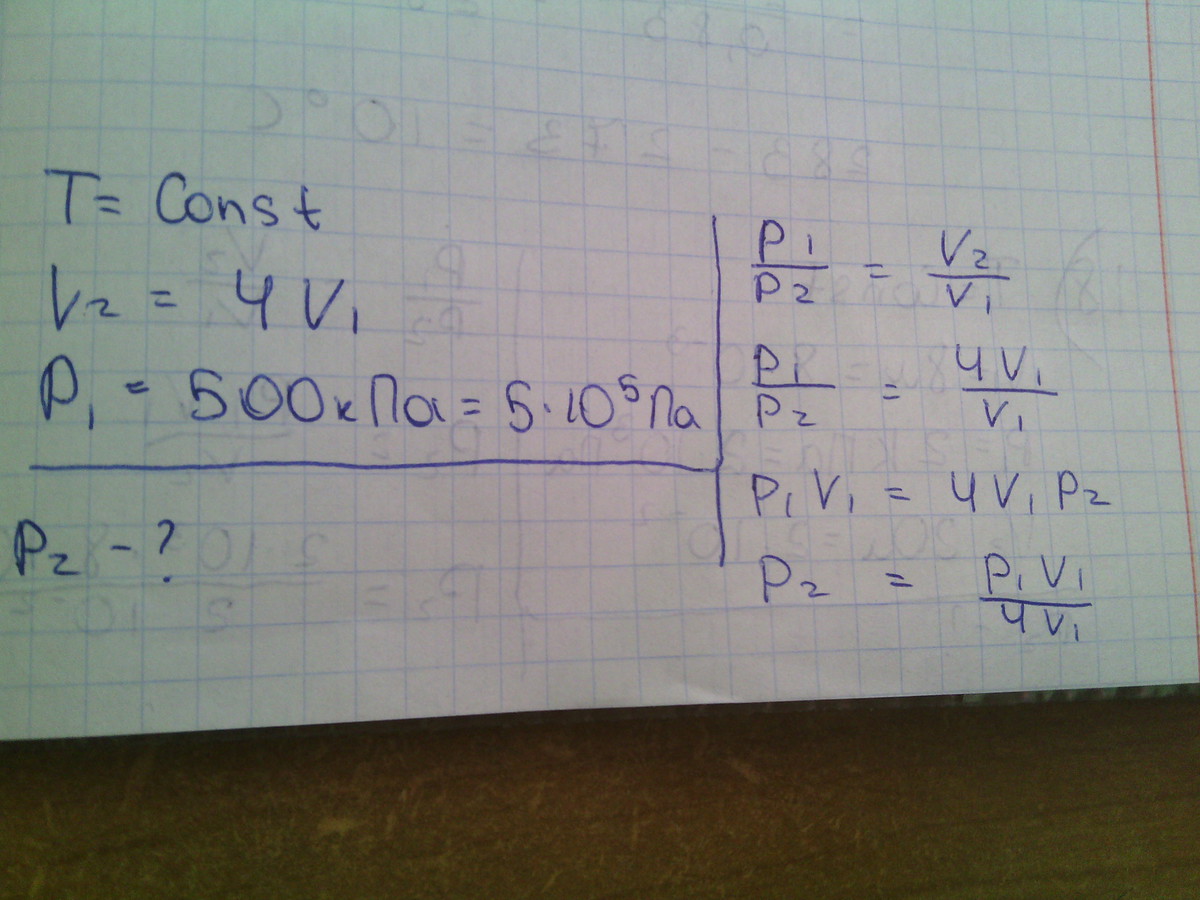 T = Const
V₂ = 4 V₁
P₁ = 500 кПа = 5·10⁵ Па
P₂ - ?
P₁/P₂ = V₂/V₁
P₁/P₂ = 4V₁/V₁
P₁ V₁ = 4 V₁ P₂
P₂ = P₁ V₁/4 V₁